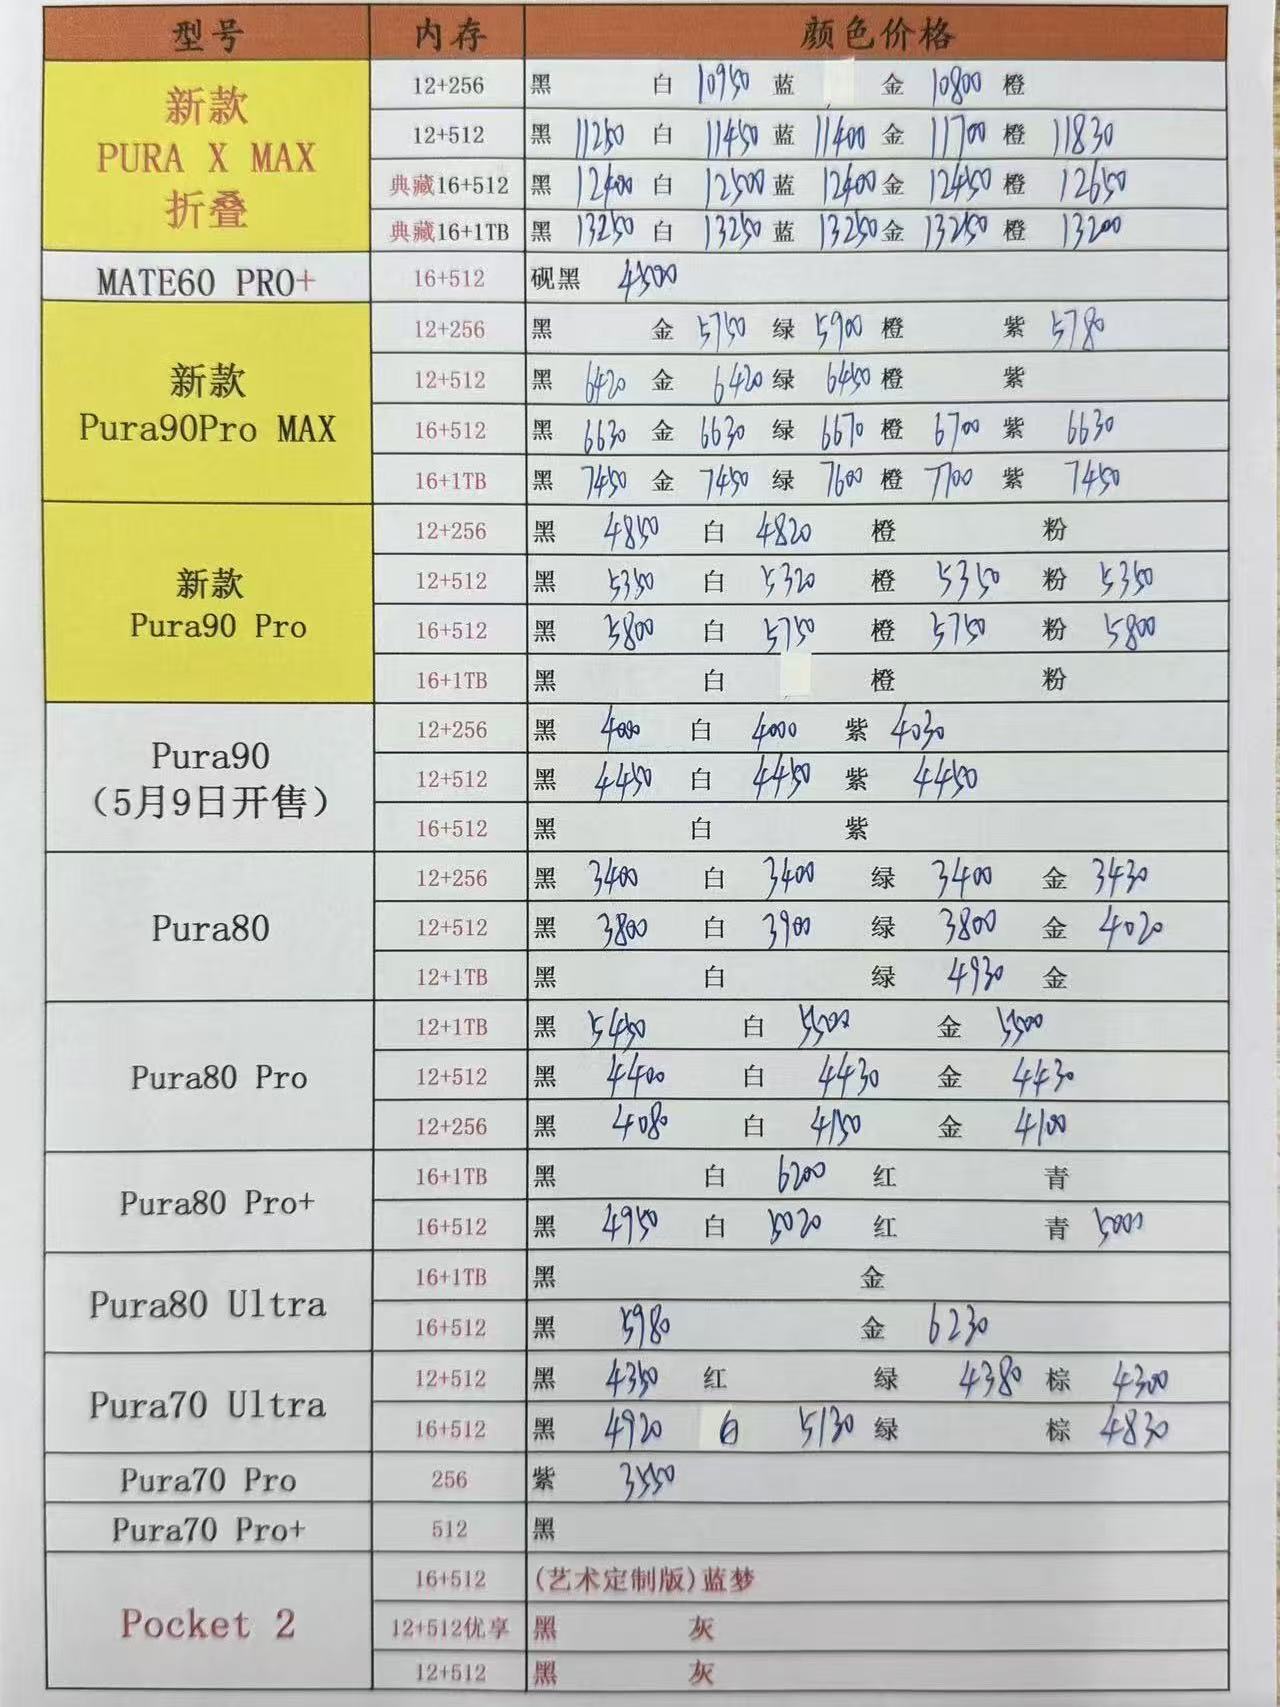 型号 内存 颜色价格
新款
PURA X MAX
折叠
12+256 黑 白 10950 蓝 金 10800 橙
12+512 黑 11250 白 11450 蓝 11400 金 11700 橙 11830
典藏16+512 黑 12400 白 12500 蓝 12400 金 12450 橙 12650
典藏16+1TB 黑 13250 白 13250 蓝 13250 金 13250 橙 13200
MATE60 PRO+ 16+512 砚黑 4500
新款
Pura90Pro MAX
12+256 黑 金 5750 绿 5900 橙 紫 5780
12+512 黑 6420 金 6420 绿 6450 橙 紫
16+512 黑 6630 金 6630 绿 6670 橙 6700 紫 6630
16+1TB 黑 7450 金 7450 绿 7600 橙 7700 紫 7450
新款
Pura90 Pro
12+256 黑 4850 白 4820 橙 粉
12+512 黑 5350 白 5320 橙 5350 粉 5350
16+512 黑 5800 白 5750 橙 5750 粉 5800
16+1TB 黑 白 橙 粉
Pura90
（5月9日开售）
12+256 黑 4000 白 4000 紫 4030
12+512 黑 4450 白 4450 紫 4450
16+512 黑 白 紫
Pura80
12+256 黑 3400 白 3400 绿 3400 金 3430
12+512 黑 3800 白 3900 绿 3800 金 4020
12+1TB 黑 白 绿 4930 金
Pura80 Pro
12+1TB 黑 5450 白 5500 金 5500
12+512 黑 4400 白 4430 金 4430
12+256 黑 4080 白 4150 金 4100
Pura80 Pro+
16+1TB 黑 白 6200 红 青
16+512 黑 4950 白 5020 红 青 5000
Pura80 Ultra
16+1TB 黑 金
16+512 黑 5980 金 6230
Pura70 Ultra
12+512 黑 4350 红 绿 4380 棕 4300
16+512 黑 4920 白 5130 绿 棕 4830
Pura70 Pro 256 紫 3550
Pura70 Pro+ 512 黑
Pocket 2
16+512 (艺术定制版)蓝梦
12+512优享 黑 灰
12+512 黑 灰